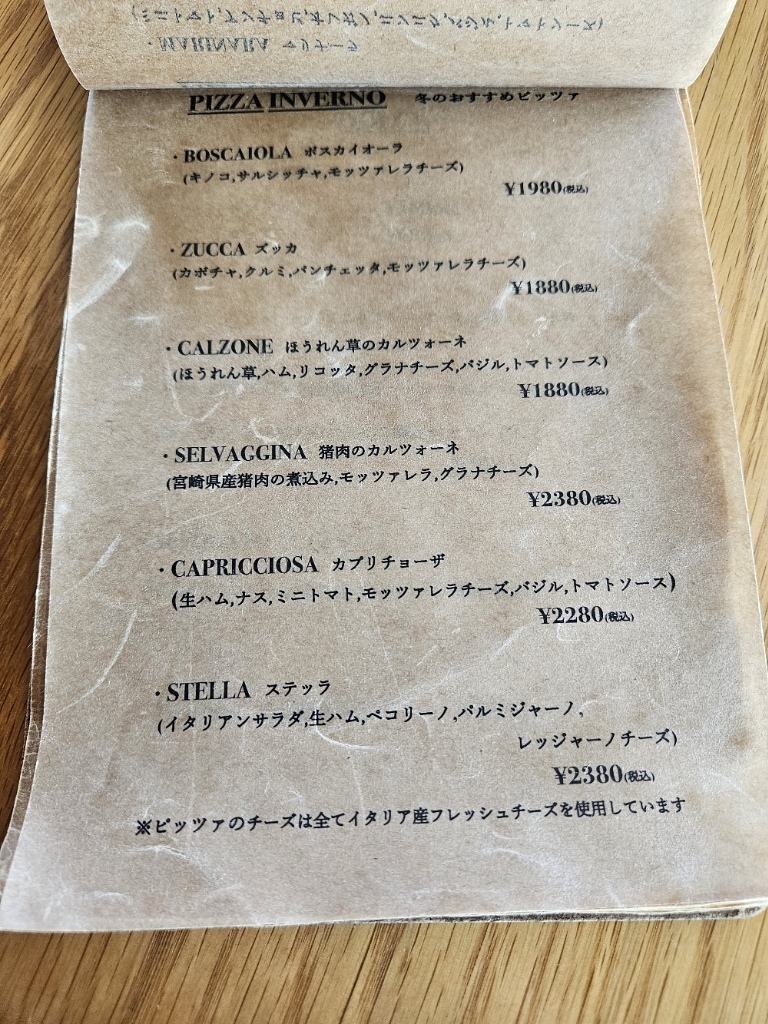 PIZZA INVERNO 冬のおすすめピッツァ
・BOSCAIOLA ボスカイオーラ
(キノコ,サルシッチャ,モッツァレラチーズ)
¥1980(税込)
・ZUCCA ズッカ
(カボチャ,クルミ,パンチェッタ,モッツァレラチーズ)
¥1880(税込)
・CALZONE ほうれん草のカルツォーネ
(ほうれん草,ハム,リコッタ,グラナチーズ,バジル,トマトソース)
¥1880(税込)
・SELVAGGINA 猪肉のカルツォーネ
(宮崎県産猪肉の煮込み,モッツァレラ,グラナチーズ)
¥2380(税込)
・CAPRICCIOSA カプリチョーザ
(生ハム,ナス,ミニトマト,モッツァレラチーズ,バジル,トマトソース)
¥2280(税込)
・STELLA ステッラ
(イタリアンサラダ,生ハム,ペコリーノ,パルミジャーノ,
レッジャーノチーズ)
¥2380(税込)
※ピッツァのチーズは全てイタリア産フレッシュチーズを使用しています